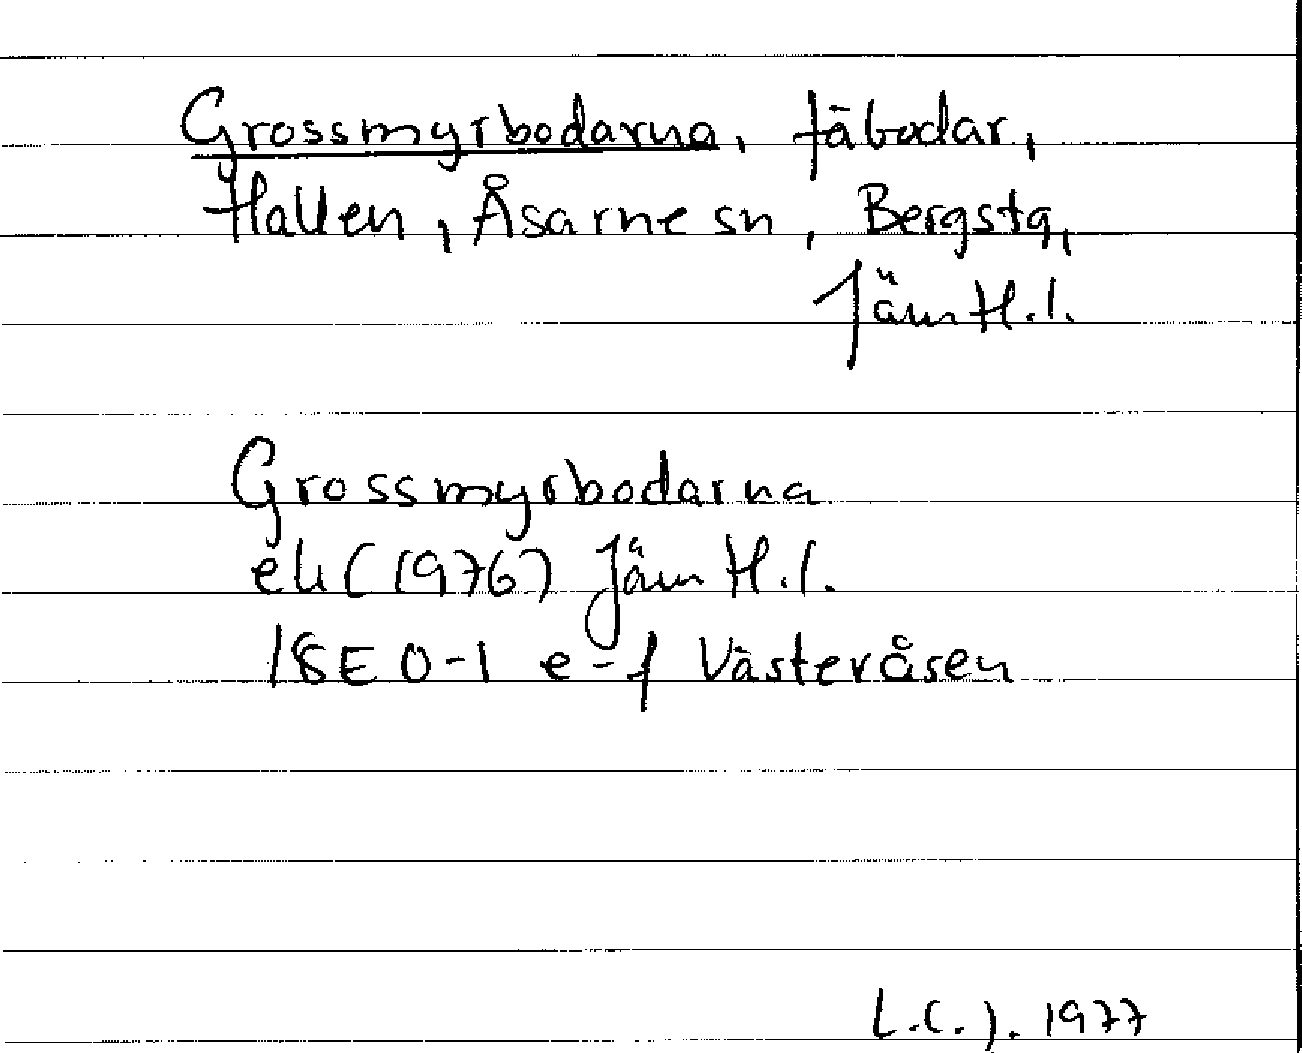 Grossmyrbodarna, fäbodar,
Hallen, Åsarne sn, Bergs tg,
Jämtl. l.
Grossmyrbodarna
ek (1976) Jämtl. l.
18E 0-1 e-f Västeråsen
L.C.J. 1977